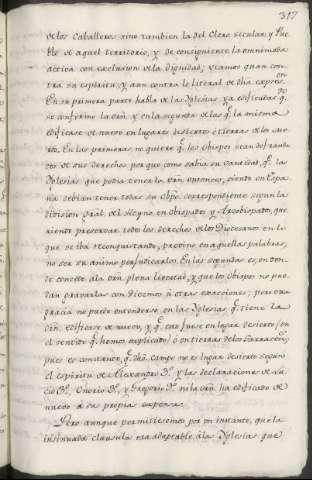 317
de los Caballeros sino tambien la del Clero secular y Pue-
blo de aquel territorio, y de consiguiente la omnimoda
accion con exclusion de la dignidad; veamos quan con-
tra su espiritu, y aun contra lo literal de dha expres.on
En su primera parte habla de las Yglesias ya edificadas q.e
se confirmo la orn. y en la segunda de las q.e la misma
edificase de nuevo en lugares desiertos ó tierras de los Mo-
ros. En las primeras no quiere q.e los Obispos sean defrauda-
dos de sus derechos por que como sabia su Santidad q.e las
Yglesias que podia tener la orn. entonces, siendo en Espa-
ña debian tener todas su Obpo. correspondiente segun la
division del Reyno en Obispados y Arzobispados, que-
riendo preservar todo los derechos de los Diocesanos en lo
que se iba reconquistando, previno en aquellas palabras,
no ser su animo perjudicarlos. En las segundas es, en don-
de concede a la orn. plena libertad, y que los Obispos no pue-
dan gravarlas con Diezmos ni otras exacciones; pero esta
gracia no puede entenderse en las Yglesias q.e tiene la
orn. edificase de nuevo, y q.e esto fuese en lugar desierto (en
el sentido q.e hemos explicado) ó en tierras de los Sarracen.s
pues es constante q.e dho. campo no es lugar desierto segun
el espiritu de Alexandro 3.o y las declaraciones de Lu-
cio 3.o, Onorio 3.o, y Gregorio ni la orn. ha edificado de
nuevo á su propias expensas.
Pero aunque permitiesemos por un instante, que la
insinuada clausula era adaptable á las Yglesias que